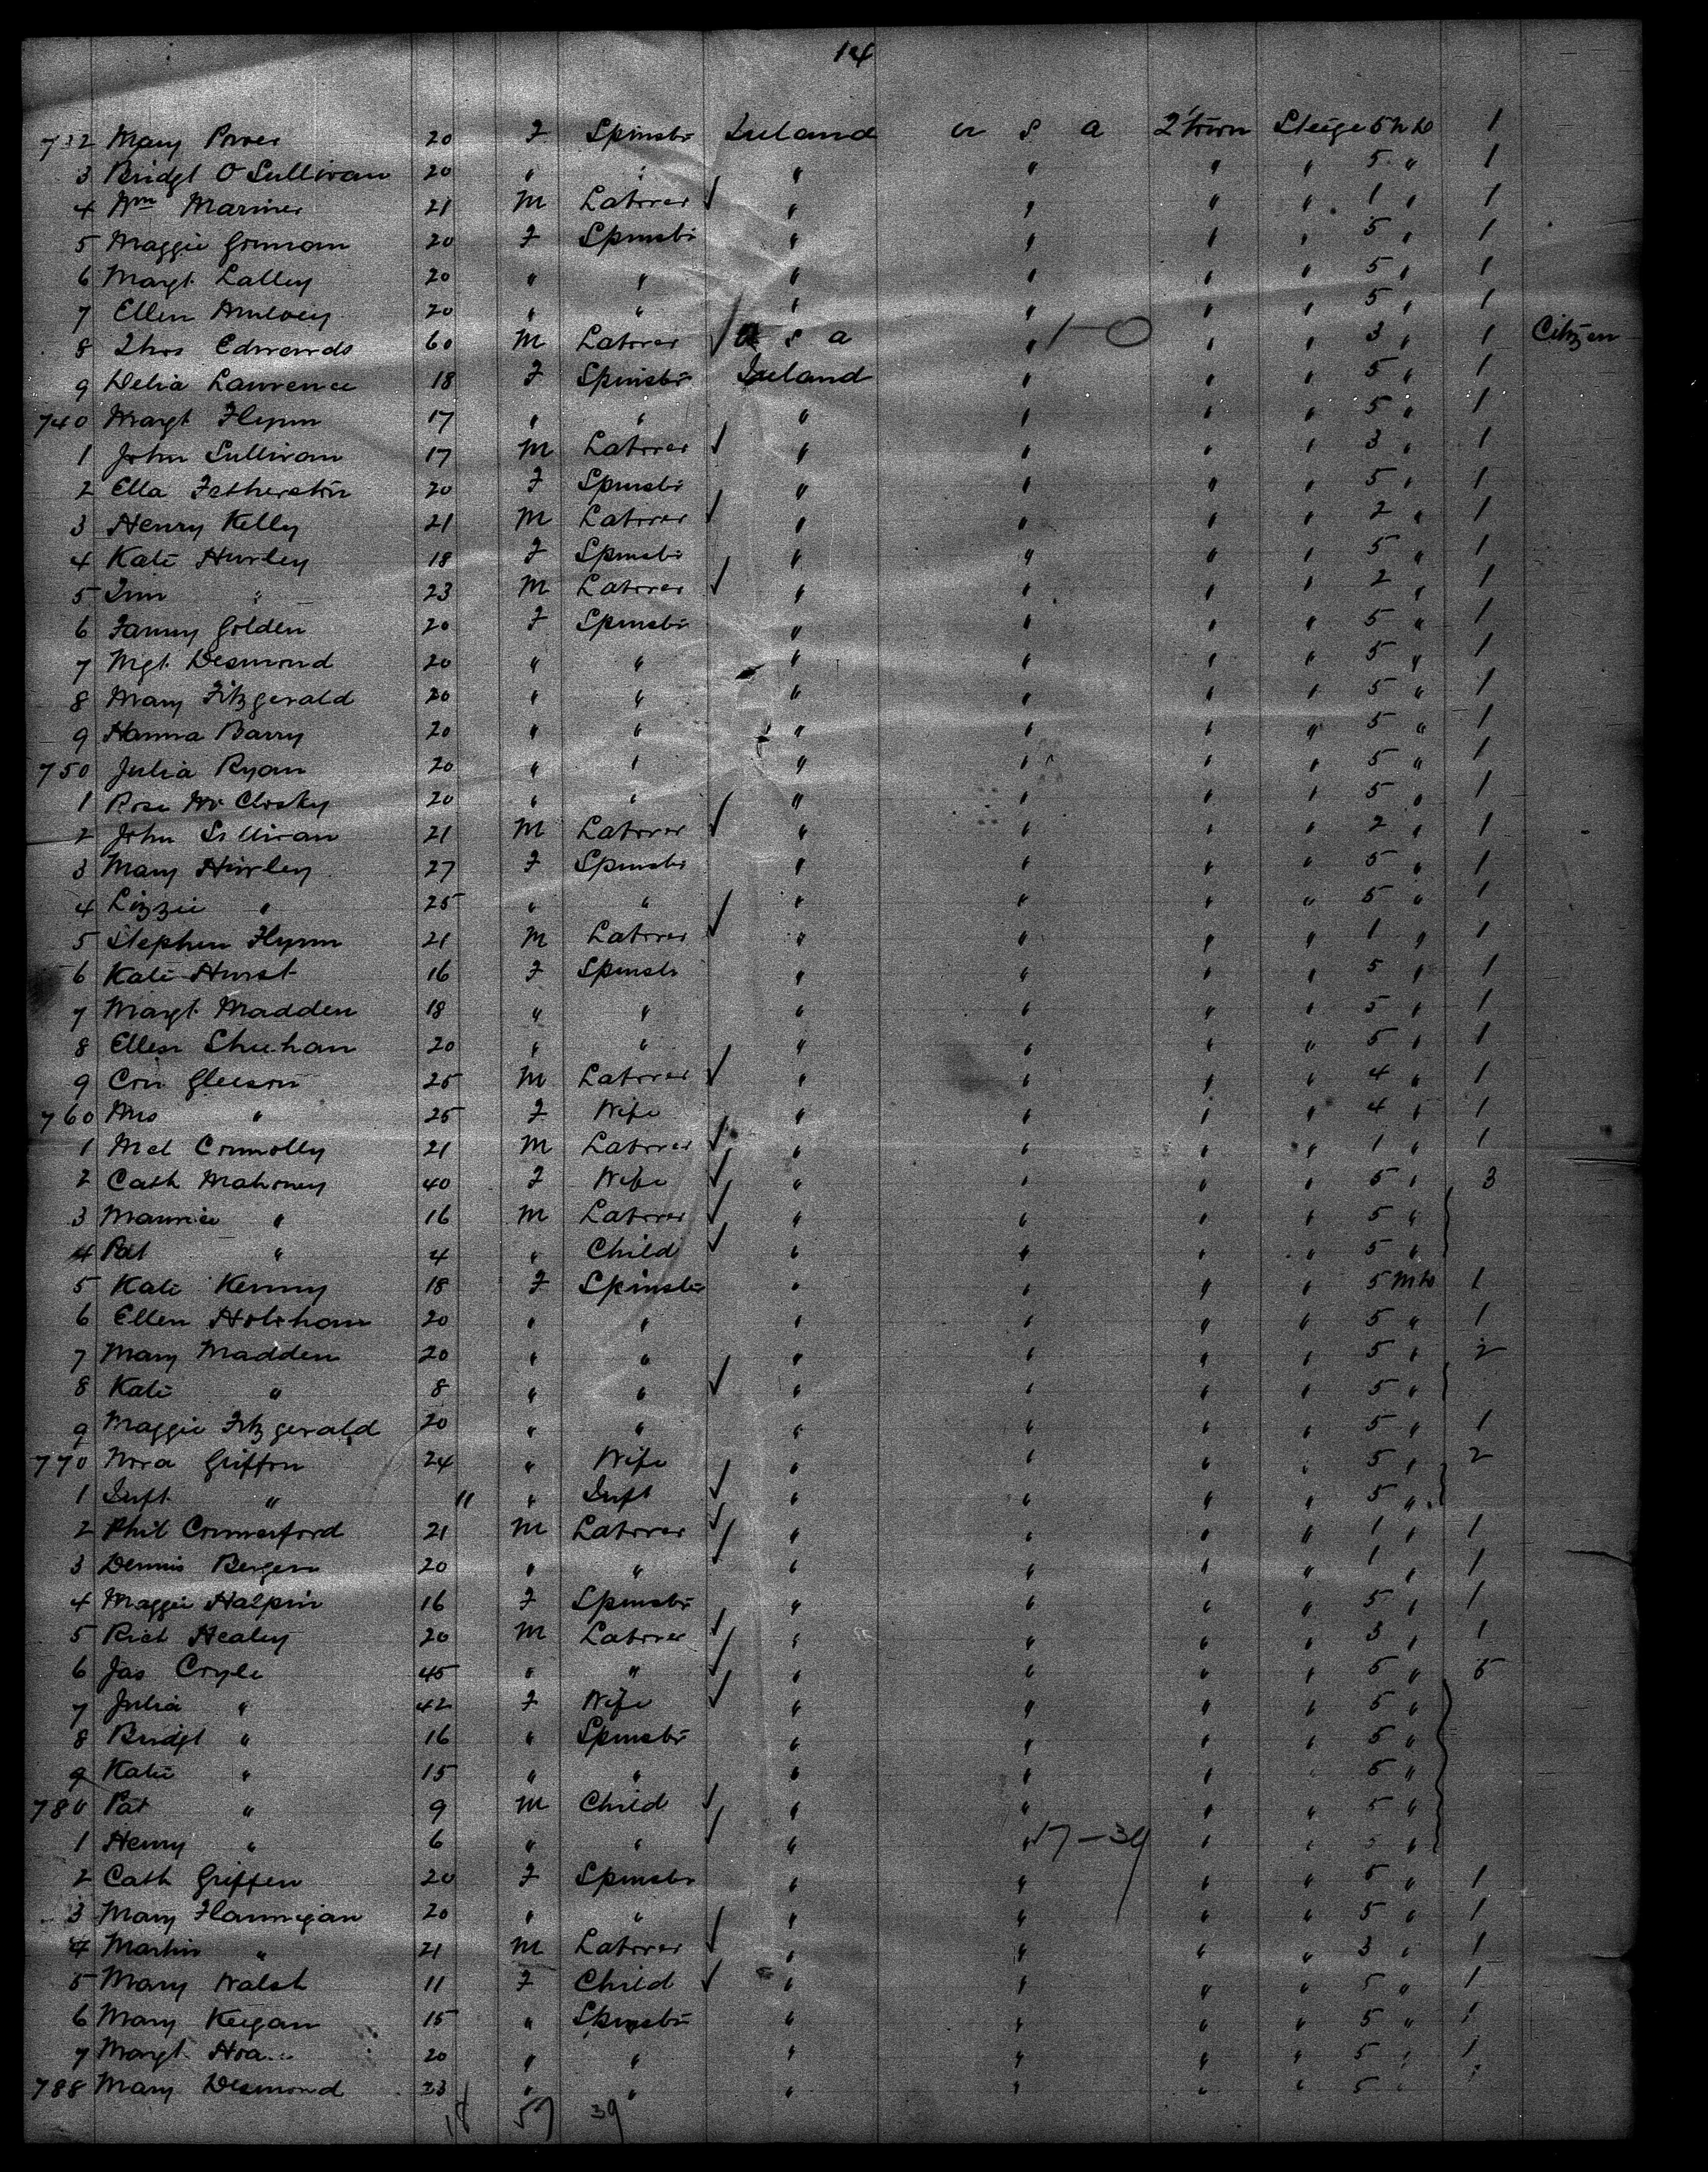 14
732 Mary Power 20 F Spinstr Ireland U S A Q'town Steige 5 h to 1
3 Bridgt O'Sullivan 20 " " " " " " 5 " 1
4 Wm Mariner 21 M Laborer " " " " 1 " 1
5 Maggie Gorman 20 F Spinstr " " " " 5 " 1
6 Margt Lalley 20 " " " " " " 5 " 1
7 Ellen 20 " " " " " " 5 " 1
8 Thos Edwards 60 M Laborer U S A " 1-0 " " 3 " 1 Citizen
9 Delia Lawrence 18 F Spinstr Ireland " " " 5 " 1
740 Margt Flynn 17 " " " " " " 5 " 1
1 John Sullivan 17 M Laborer " " " " 3 " 1
2 Ella Fetherston 20 F Spinstr " " " " 5 " 1
3 Henry Kelly 21 M Laborer " " " " 2 " 1
4 Kate Hurley 18 F Spinstr " " " " 5 " 1
5 Tim " 23 M Laborer " " " " 2 " 1
6 Fanny Golden 20 F Spinstr " " " " 5 " 1
7 Mgt Desmond 20 " " " " " " 5 " 1
8 Mary Fitzgerald 20 " " " " " " 5 " 1
9 Hanna Barry 20 " " " " " " 5 " 1
750 Julia Ryan 20 " " " " " " 5 " 1
1 Rose McClosky 20 " " " " " " 5 " 1
2 John Sullivan 21 M Laborer " " " " 2 " 1
3 Mary Hurley 27 F Spinstr " " " " 5 " 1
4 Lizzie " 25 " " " " " " 5 " 1
5 Stephen Flynn 21 M Laborer " " " " 1 " 1
6 Kate Hurst 16 F Spinstr " " " " 5 " 1
7 Margt Madden 18 " " " " " " 5 " 1
8 Ellen Sheehan 20 " " " " " " 5 " 1
9 Con Gleeson 25 M Laborer " " " " 4 " 1
760 Mrs " 25 F Wife " " " " 4 " 1
1 Mcl Connolly 21 M Laborer " " " " 1 " 1
2 Cath Mahoney 40 F Wife " " " " 5 " 3
3 Maurice " 16 M Laborer " " " " 5 "
4 Pat " 4 " Child " " " " 5 "
5 Kate Kenny 18 F Spinster " " " " 5 M to 1
6 Ellen Holohan 20 " " " " " " 5 " 1
7 Mary Madden 20 " " " " " " 5 " 2
8 Kate " 8 " " " " " " 5 "
9 Maggie Fitzgerald 20 " " " " " " 5 " 1
770 Nora Griffon 24 " Wife " " " " 5 " 2
1 Inft " 11 " Inft " " " " 5 "
2 Phil Commerford 21 M Laborer " " " " 1 " 1
3 Dennis Bergen 20 " " " " " " 1 " 1
4 Maggie Halpin 16 F Spinstr " " " " 5 " 1
5 Rich Healey 20 M Laborer " " " " 3 " 1
6 Jas Coyle 45 " " " " " " 5 " 5
7 Julia " 42 F Wife " " " " 5 "
8 Bridgt " 16 " Spinstr " " " " 5 "
9 Katie " 15 " " " " " 5 "
780 Pat " 9 M Child " " " " 5 "
1 Henry " 6 " " " " 17-39 " " 5 "
2 Cath Griffen 20 F Spinstr " " " " 5 " 1
3 Mary Flannigan 20 " " " " " " 5 " 1
4 Martin " 21 M Laborer " " " " 3 " 1
5 Mary Walsh 11 F Child " " " " 5 " 1
6 Mary Keegan 15 " Spinstr " " " " 5 " 1
7 Margt 20 " " " " " " 5 " 1
788 Mary Desmond 23 " " " " " " 5 "
18 57 39